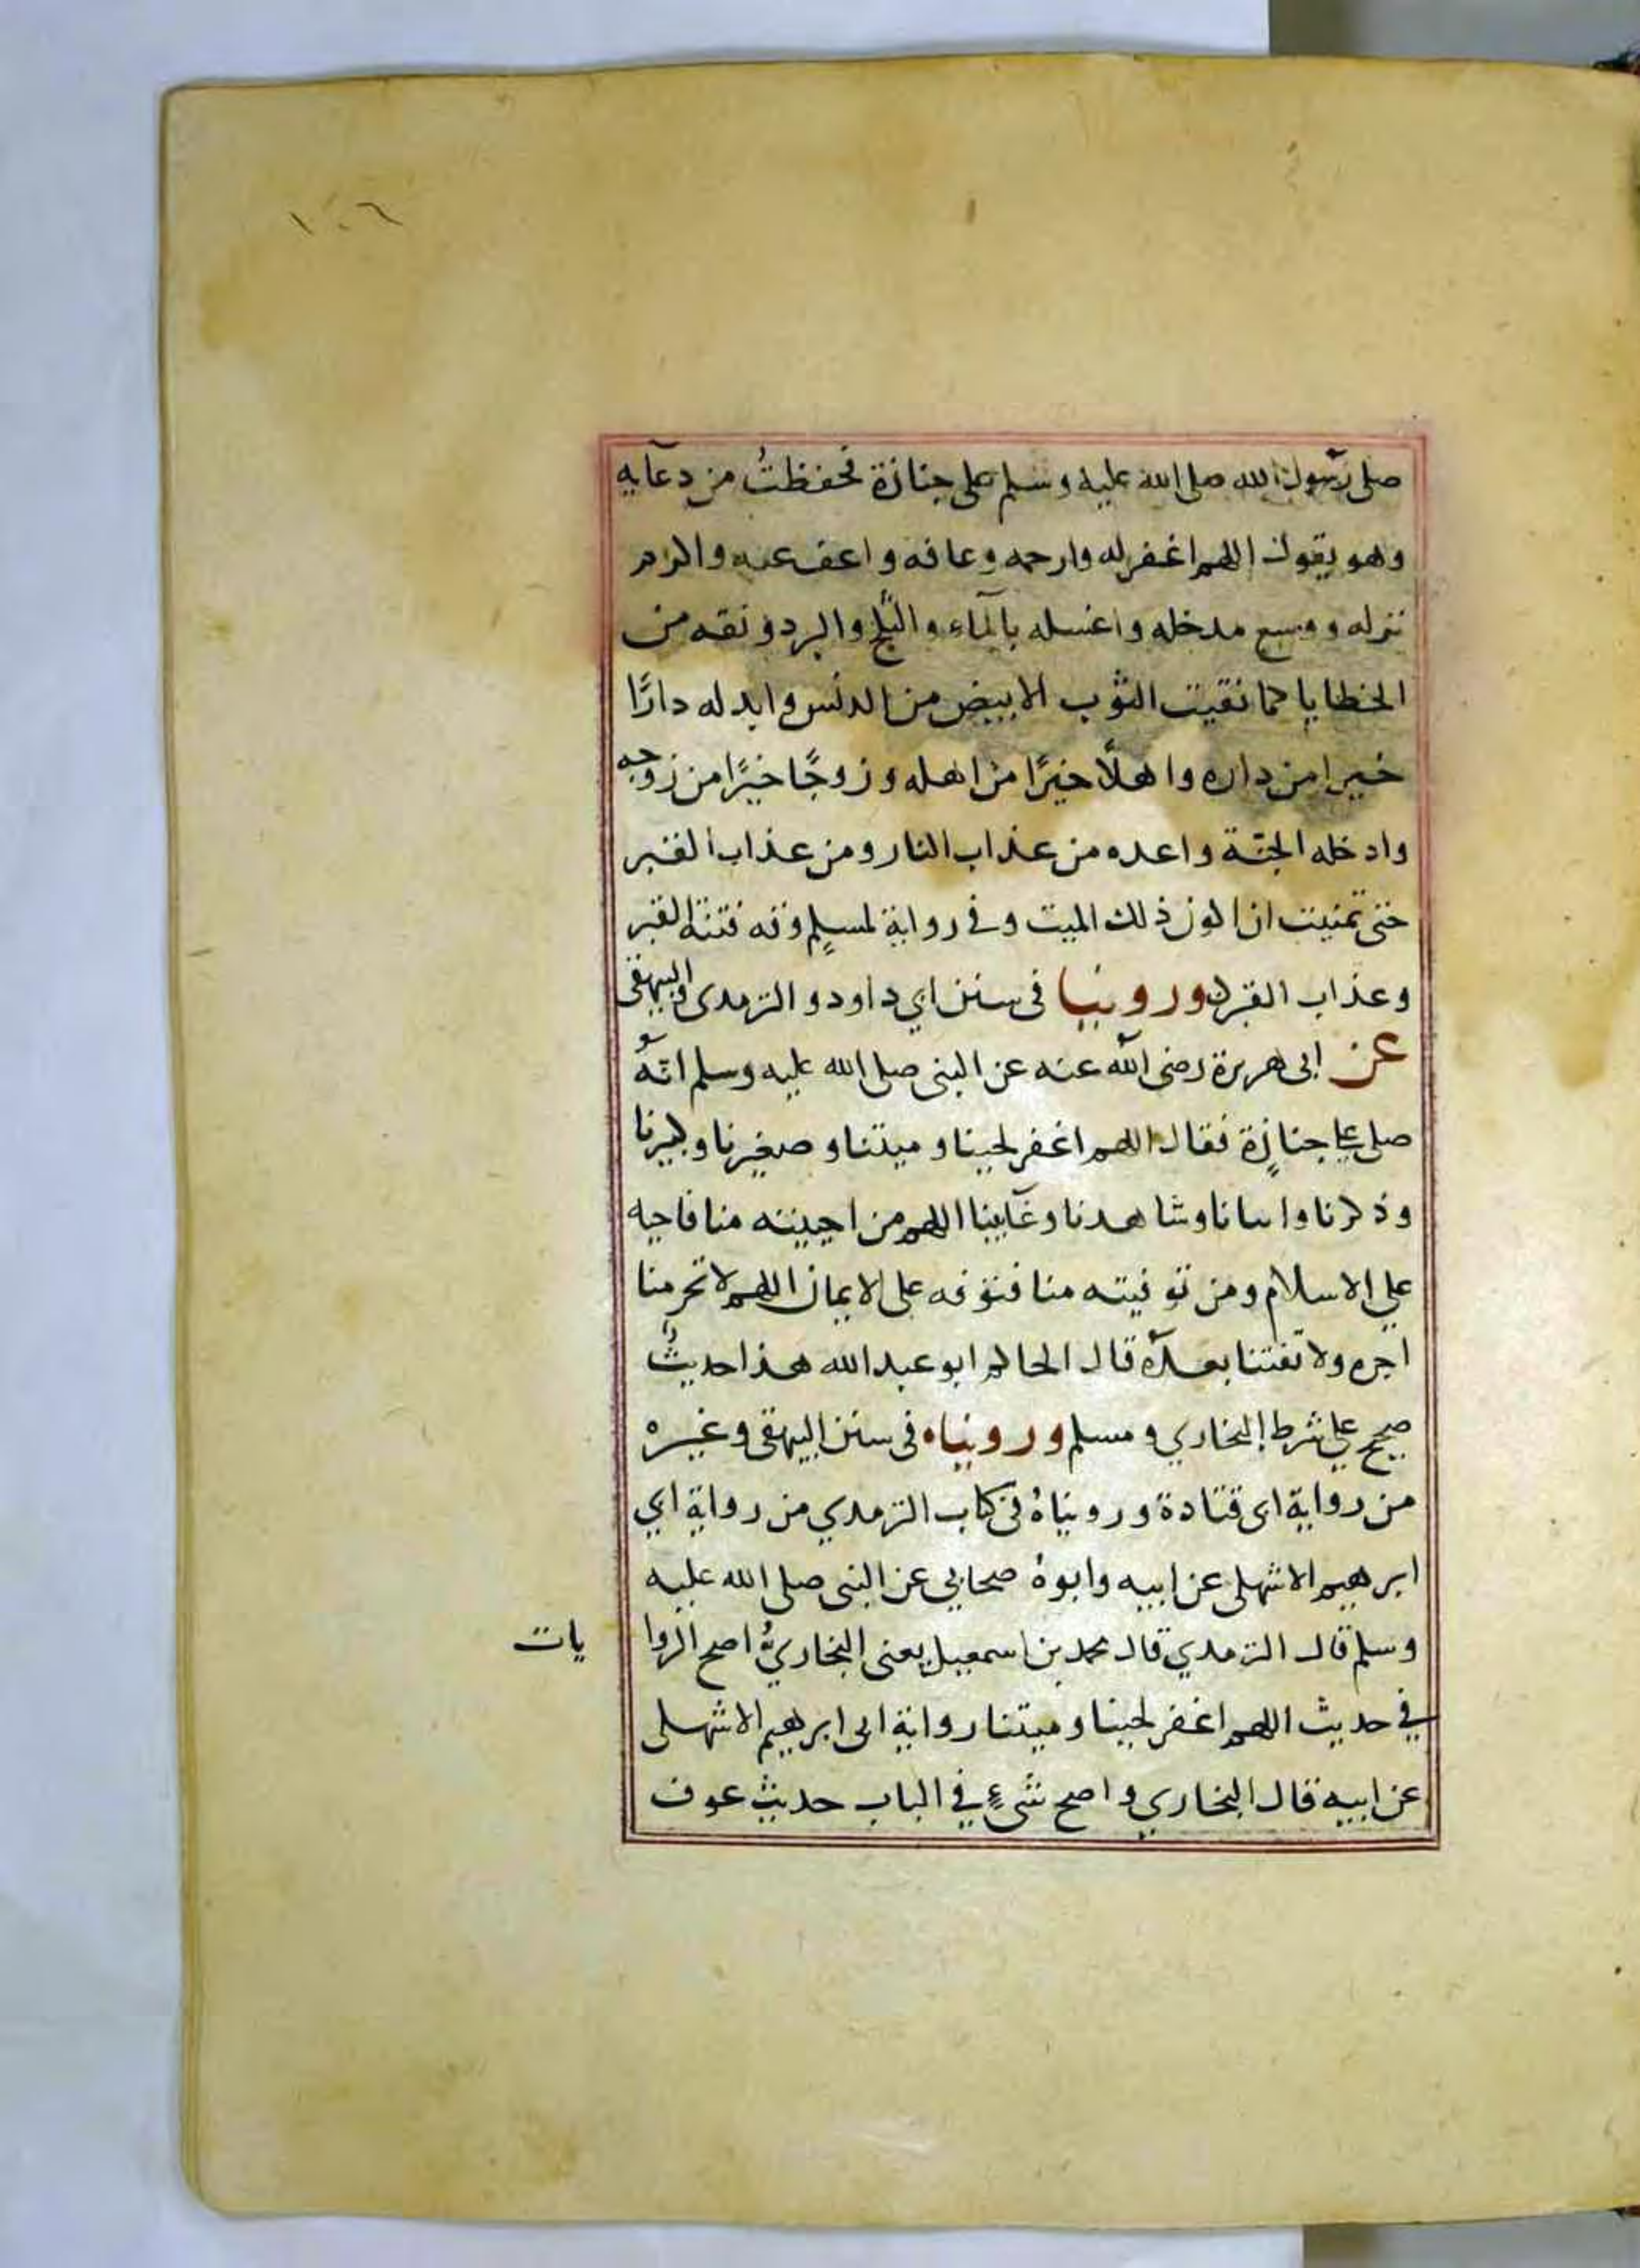 ١٠٦
صلى رسول الله صلى الله عليه وسلم على جنازة فحفظتُ من دعآيه
وهو يقول اللهم اغفر له وارحمه وعافه واعف عنه واكرم
نزله ووسع مدخله واغسله بالمآء والثلج والبرد ونقه من
الخطايا كما نقيت الثوب الابيض من الدنس وابدله دارًا
خيرا من داره واهلًا خيرًا من اهله وزوجًا خيرًا من زوجه
وادخله الجنّة واعده من عذاب النار ومن عذاب القبر
حتى تمنيت ان اكون ذلك الميت وفي رواية لمسلم وقه فتنة القبر
وعذاب القبر وروينا في سنن ابي داود والترمدى والبيهقى
عن ابى هريرة رضى الله عنه عن النبى صلى الله عليه وسلم انّهُ
صلى على جنازة فقال اللهم اغفر لحينا وميتنا وصغيرنا وكبيرنا
وذكرنا وانثانا وشاهدنا وغآيبنا اللهم من احييته منا فاحيه
على الاسلام ومن توفيته منا فتوفه على الايمان اللهم لا تحرمنا
اجره ولا تفتنا بعدَهُ قال الحاكم ابو عبد الله هذا حديثٌ
صحيح علي شرط البخاري ومسلم وروبناه فى سنن البيهقى وغيره
من رواية ابى قتادة وروبناهُ فى كتاب الترمدي من رواية ابي
ابرهيم الاشهلى عن ابيه وابوهُ صحابي عن النبى صلى الله عليه
وسلم قال الترمدي قال محمد بن اسمعيل يعنى البخاريُّ اصح الروا يات
في حديث اللهم اغفر لحينا وميتنا رواية ابى ابرهيم الاشهلى
عن ابيه قال البخاري واصح شىءٍ في الباب حديث عوف